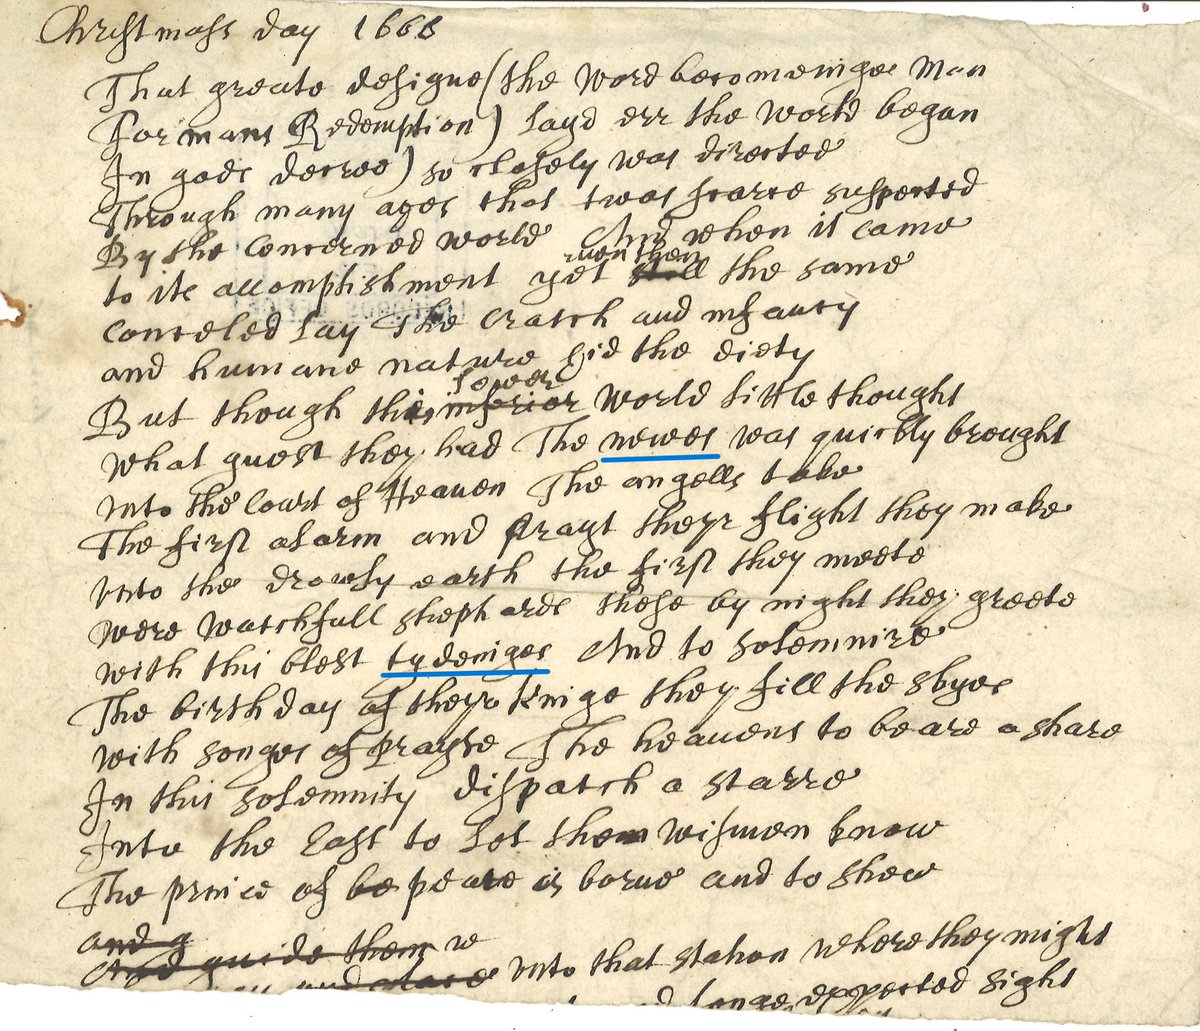 Christmass day 1668
That greate designe (the word becomeinge Man
For mans Redemption) layd err the world began
In gods decree) so closely was directed
Through many ages that twas scarce suspected
By the Concerned world And when it came
even then
to its accomplishment yet still the same
Conceled lay The Cratch and infancy
and humane nature hid the diety
lower
But though this inferior World little thought
What guest they had The newes was quickly brought
Into the Court of Heaven The angells take
The first alarm and strayt theyr flight they make
Unto the drowsy earth the first they meete
Were Watchfull shephards these by night they greete
With this blest tydeniges And to solemnize
The birthday of theyr Kinge they fill the skyes
With songes of Prayse The heavens to beare a share
In this solemnity dispatch a starre
Into the East to let them wismen know
The prince of be peace is borne and to shew
and g
And guide them w
and place Unto that station where they might
longe expected sight